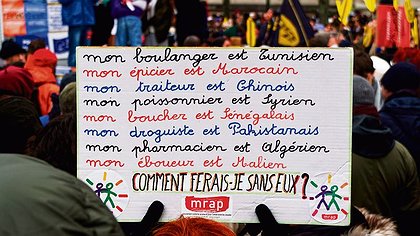 mon boulanger est Tunisien
mon épicier est Marocain
mon traiteur est Chinois
mon poissonnier est Syrien
mon boucher est Sénégalais
mon droguiste est Pakistanais
mon pharmacien est Algérien
mon éboueur est Malien
COMMENT FERAIS-JE SANS EUX ?
mrap